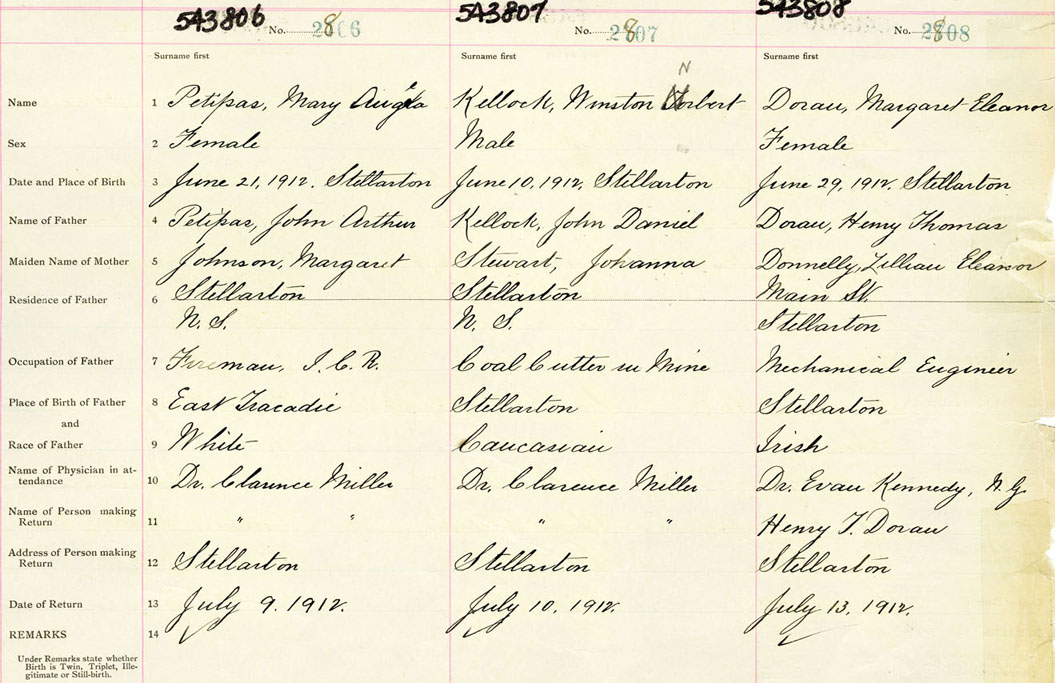 543806 543807 543808
No. 2806 No. 2807 No. 2808
Surname first Surname first Surname first
Name 1 Petipas, Mary Kellock, Winston Norbert Dorau, Margaret Eleanor
Sex 2 Female Male Female
Date and Place of Birth 3 June 21, 1912. Stellarton June 10, 1912, Stellarton June 29, 1912. Stellarton
Name of Father 4 Petipas, John Arthur Kellock, John Daniel Dorau, Henry Thomas
Maiden Name of Mother 5 Johnson, Margaret Stewart, Johanna Donnelly, Lillian Eleanor
Residence of Father 6 Stellarton Stellarton Main St.
N. S. N. S. Stellarton
Occupation of Father 7 Fireman, I.C.R. Coal Cutter in Mine Mechanical Engineer
Place of Birth of Father 8 East Tracadie Stellarton Stellarton
and
Race of Father 9 White Caucasian Irish
Name of Physician in at-
tendance 10 Dr. Clarence Miller Dr. Clarence Miller Dr. Evan Kennedy, N.G.
Name of Person making
Return 11 " " " " Henry T. Dorau
Address of Person making
Return 12 Stellarton Stellarton Stellarton
Date of Return 13 July 9. 1912. July 10. 1912. July 13. 1912.
REMARKS 14
Under Remarks state whether
Birth is Twin, Triplet, Ille-
gitimate or Still-birth.